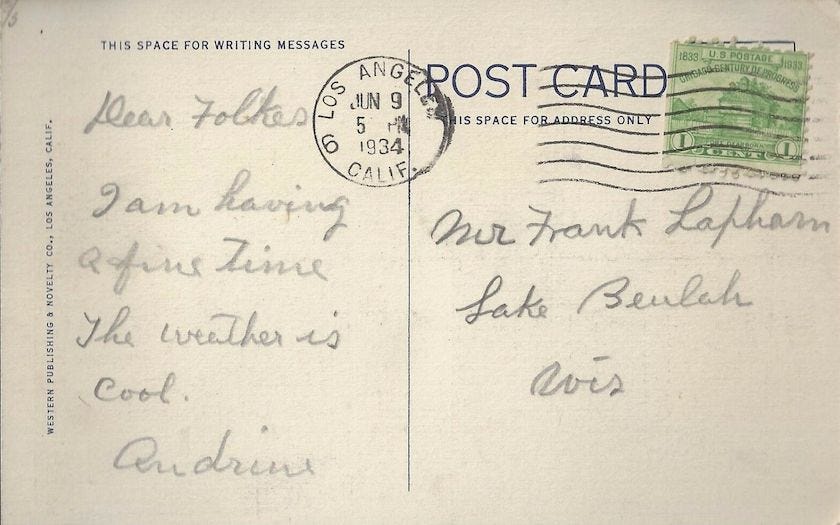 THIS SPACE FOR WRITING MESSAGES
Dear Folkes
I am having
a fine Time
The weather is
cool.
Andrine
WESTERN PUBLISHING & NOVELTY CO., LOS ANGELES, CALIF.
LOS ANGELES
JUN 9
5 PM
1934
CALIF.
6
POST CARD
THIS SPACE FOR ADDRESS ONLY
1833 U.S. POSTAGE 1933
CHICAGO CENTURY OF PROGRESS
1 CENT 1
Mr Frank Lapham
Lake Beulah
Wis